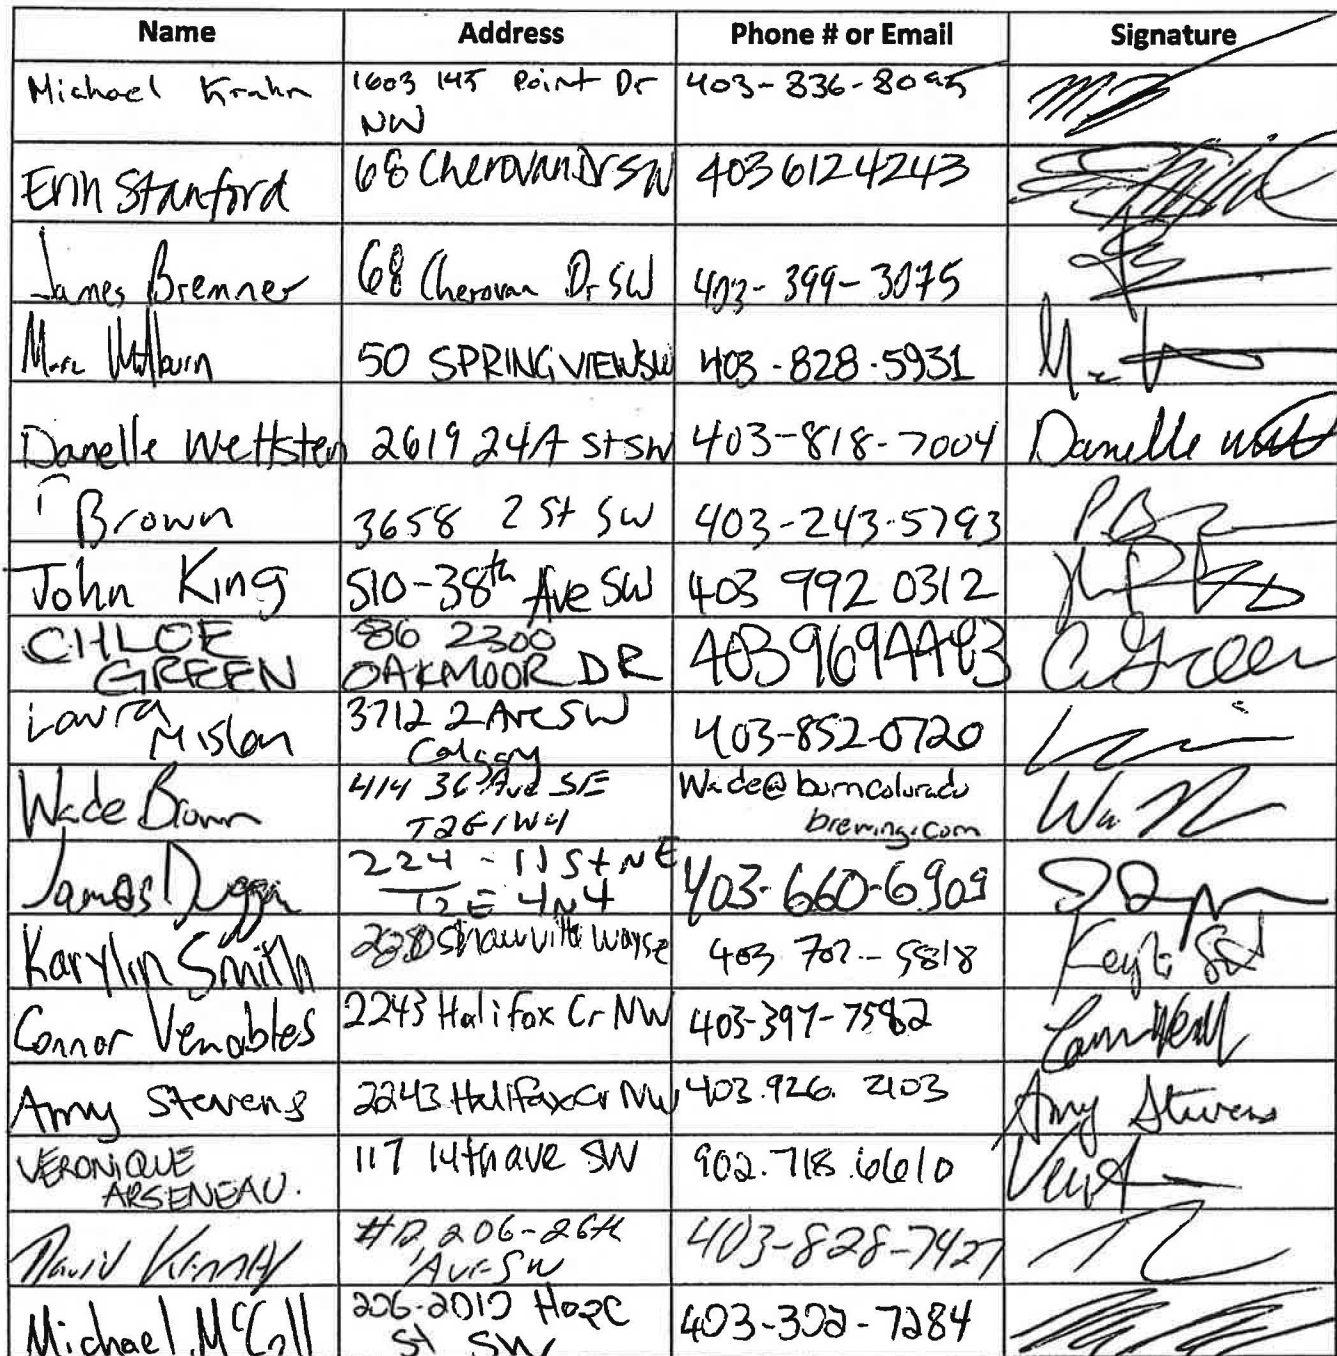 Name Address Phone # or Email Signature
Michael Krahn 1603 145 Point Dr 403-836-8095
NW
Erin Stanford 68 Cherovan Dr SW 403 612 4243
James Bremner 68 Cherovan Dr SW 403-399-3075
Marc 50 SPRING VIEW SW 403-828-5931
Danelle Wettstein 2619 24A St SW 403-818-7004 Danelle
Brown 3658 2 St SW 403-243-5793
John King 510-38th Ave SW 403 992 0312
CHLOE 86 2300
GREEN OAKMOOR DR 403 969 4483 C Green
Laura 3712 2 Ave SW 403-852-0720
Mislan Calgary
Wade Brown 414 36 Ave SE Wade@burncolorado
T2G 1W4 brewing.com
James Duggan 224 - 11 St NE 403-660-6909
T2E 4N4
Karylin Smith Shawville Way SE 403 702-5818
Connor Venables 2243 Halifax Cr NW 403-397-7582
Amy Stevens 2243 Halifax Cr NW 403.926.2103 Amy Stevens
VERONIQUE 117 14th ave SW 902.718.6610
ARSENEAU.
David 206-26th 403-828-7427
Ave SW
Michael McColl 206-2010 Hope 403-302-7284
St SW